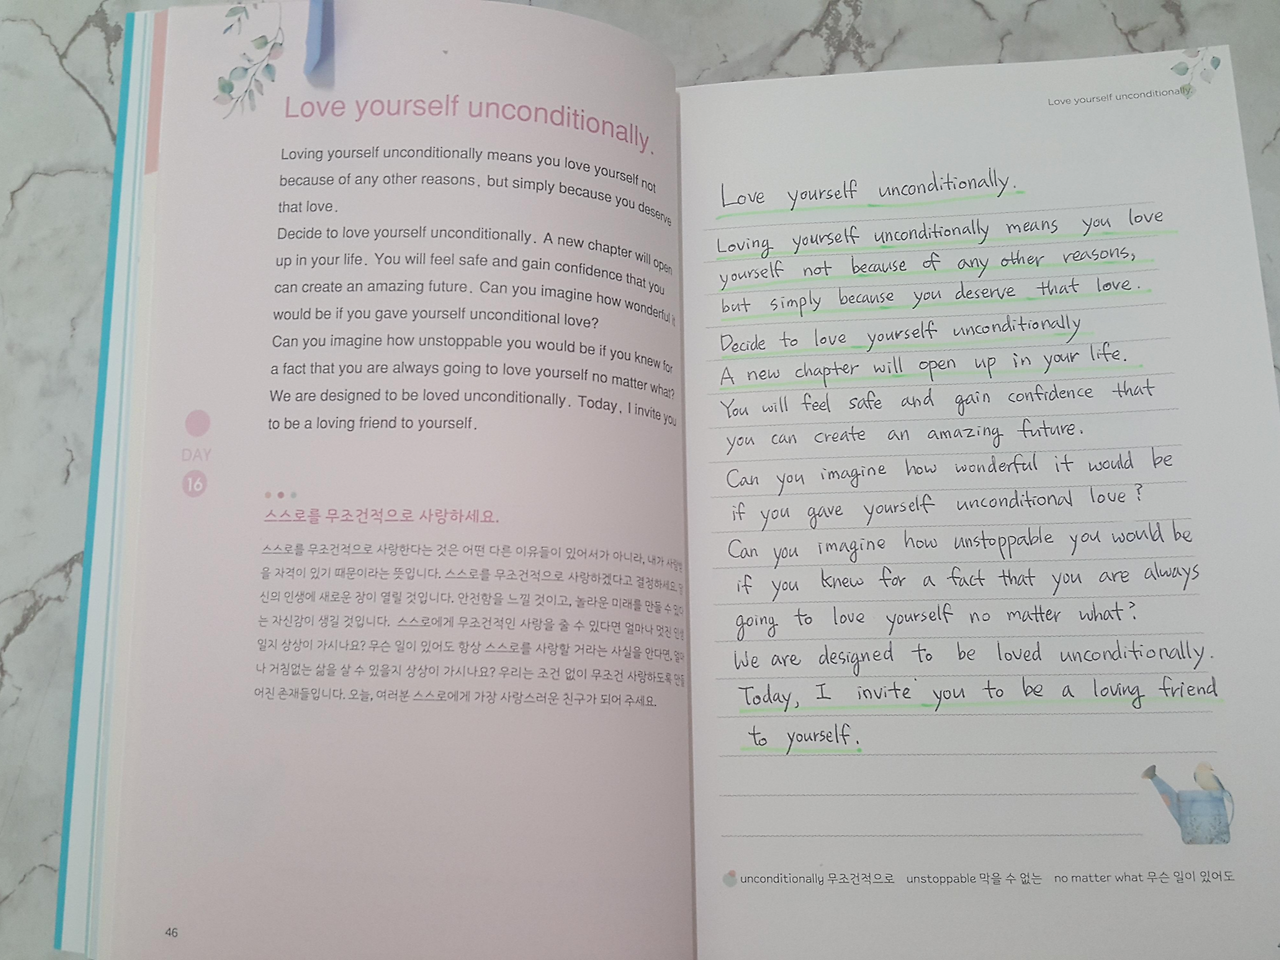 Love yourself unconditionally.
Loving yourself unconditionally means you love yourself not
because of any other reasons, but simply because you deserve
that love.
Decide to love yourself unconditionally. A new chapter will open
up in your life. You will feel safe and gain confidence that you
can create an amazing future. Can you imagine how wonderful it
would be if you gave yourself unconditional love?
Can you imagine how unstoppable you would be if you knew for
a fact that you are always going to love yourself no matter what?
We are designed to be loved unconditionally. Today, I invite you
to be a loving friend to yourself.
DAY
16
스스로를 무조건적으로 사랑하세요.
스스로를 무조건적으로 사랑한다는 것은 어떤 다른 이유들이 있어서가 아니라, 내가 사랑받
을 자격이 있기 때문이라는 뜻입니다. 스스로를 무조건적으로 사랑하겠다고 결정하세요.
신의 인생에 새로운 장이 열릴 것입니다. 안전함을 느낄 것이고, 놀라운 미래를 만들 수 있다
는 자신감이 생길 것입니다. 스스로에게 무조건적인 사랑을 줄 수 있다면 얼마나 멋진 인생
일지 상상이 가시나요? 무슨 일이 있어도 항상 스스로를 사랑할 거라는 사실을 안다면, 얼마
나 거침없는 삶을 살 수 있을지 상상이 가시나요? 우리는 조건 없이 무조건 사랑하도록 만들
어진 존재들입니다. 오늘, 여러분 스스로에게 가장 사랑스러운 친구가 되어 주세요.
46
Love yourself unconditionally.
Love yourself unconditionally.
Loving yourself unconditionally means you love
yourself not because of any other reasons,
but simply because you deserve that love.
Decide to love yourself unconditionally
A new chapter will open up in your life.
You will feel safe and gain confidence that
you can create an amazing future.
Can you imagine how wonderful it would be
if you gave yourself unconditional love?
Can you imagine how unstoppable you would be
if you knew for a fact that you are always
going to love yourself no matter what?
We are designed to be loved unconditionally.
Today, I invite you to be a loving friend
to yourself.
unconditionally 무조건적으로 unstoppable 막을 수 없는 no matter what 무슨 일이 있어도